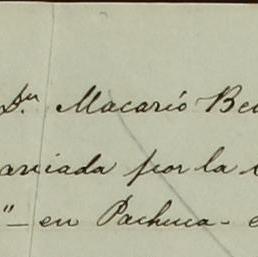 Sr. Macario Be
anciada por la
" - en Pachuca - e